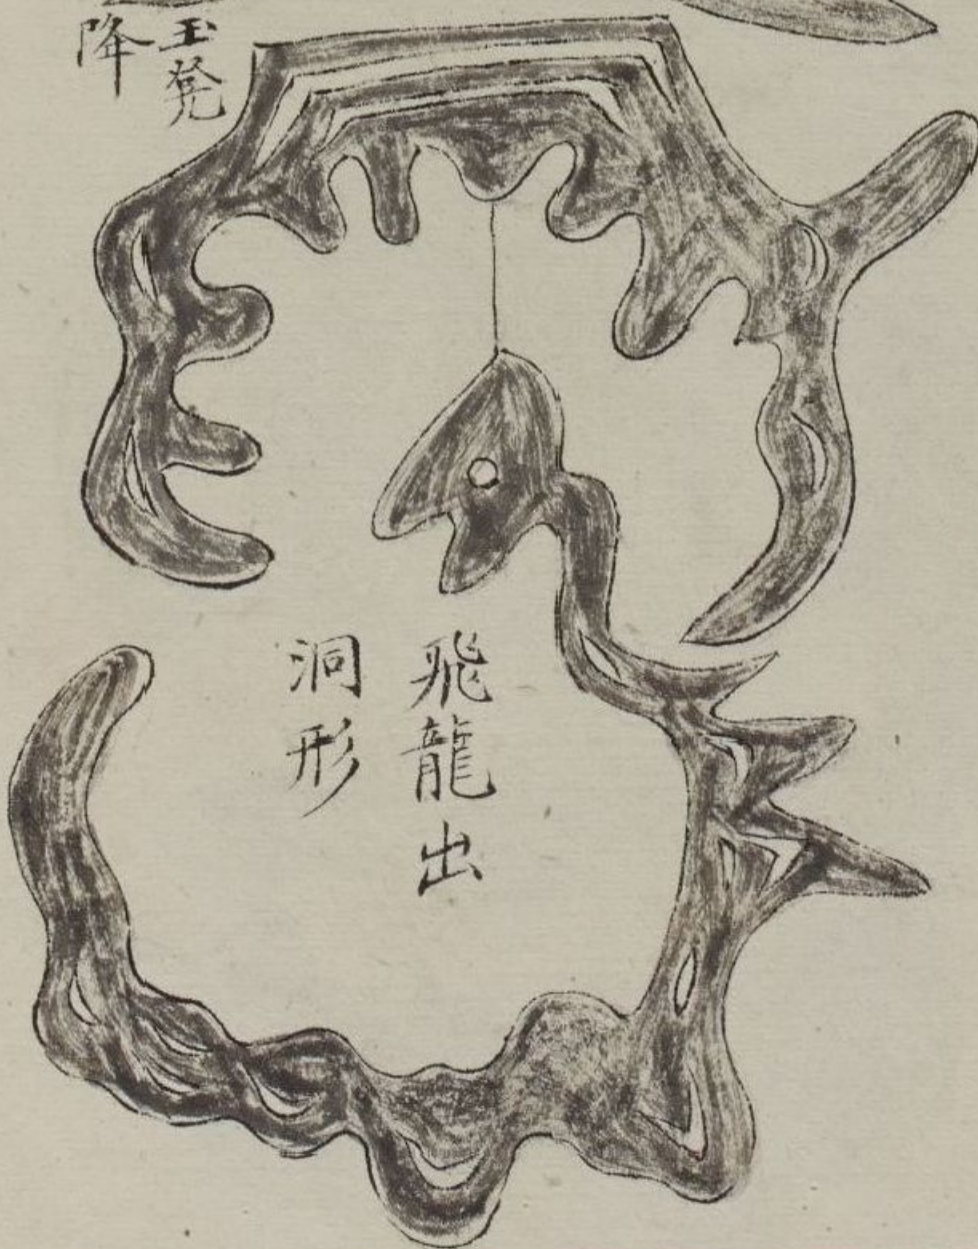 玉凳
降
飛龍出
洞形